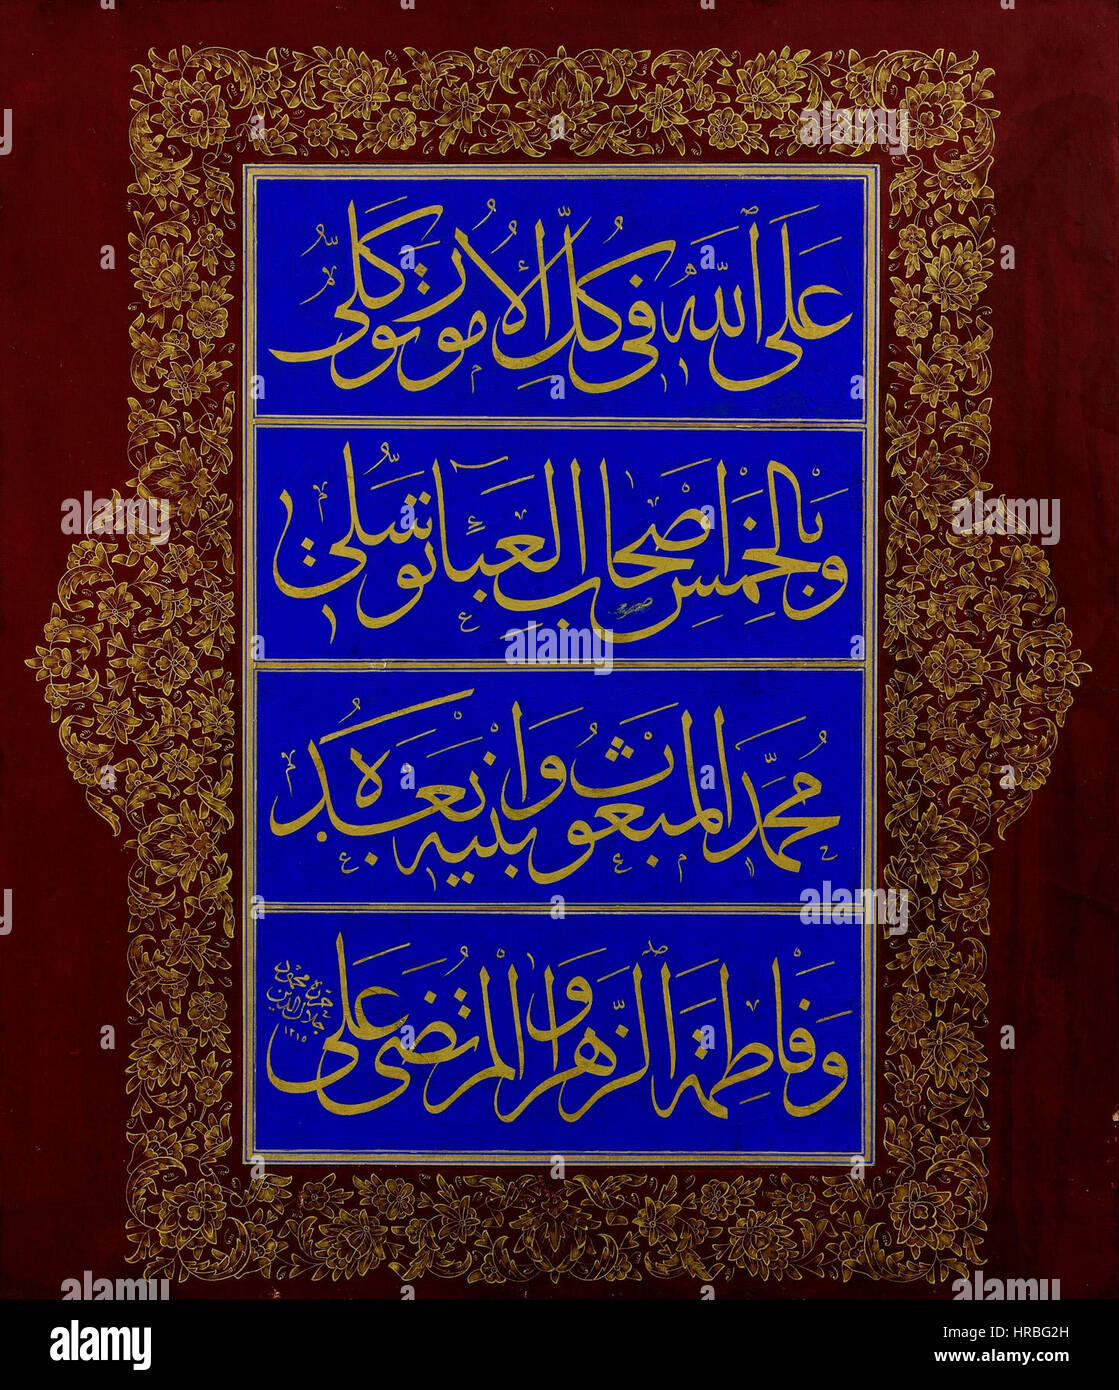 على الله في كل الأمور توكلي
وبالخمس أصحاب العباء توسلي
محمد المبعوث وابنيه بعده
وفاطمة الزهرا والمرتضى علي
حرره محمود
جلال الدين
١٢١٥
alamy stock photo
HRBG2H
www.alamy.com